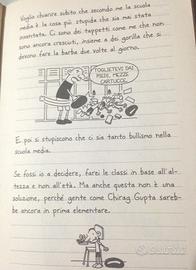 Voglio chiarire subito che secondo me la scuola
media è la cosa più stupida che sia mai stata
inventata. Ci sono dei tappetti come me che non
sono ancora cresciuti, insieme a dei gorilla che si
devono fare la barba due volte al giorno.
TOGLIETEVI DAI
PIEDI, MEZZE
CARTUCCE.
E poi si stupiscono che ci sia tanto bullismo nella
scuola media.
Se fossi io a decidere, farei le classi in base all'al-
tezza e non all'età. Ma anche questa non è una
soluzione, perché gente come Chirag Gupta sareb-
be ancora in prima elementare.
subito